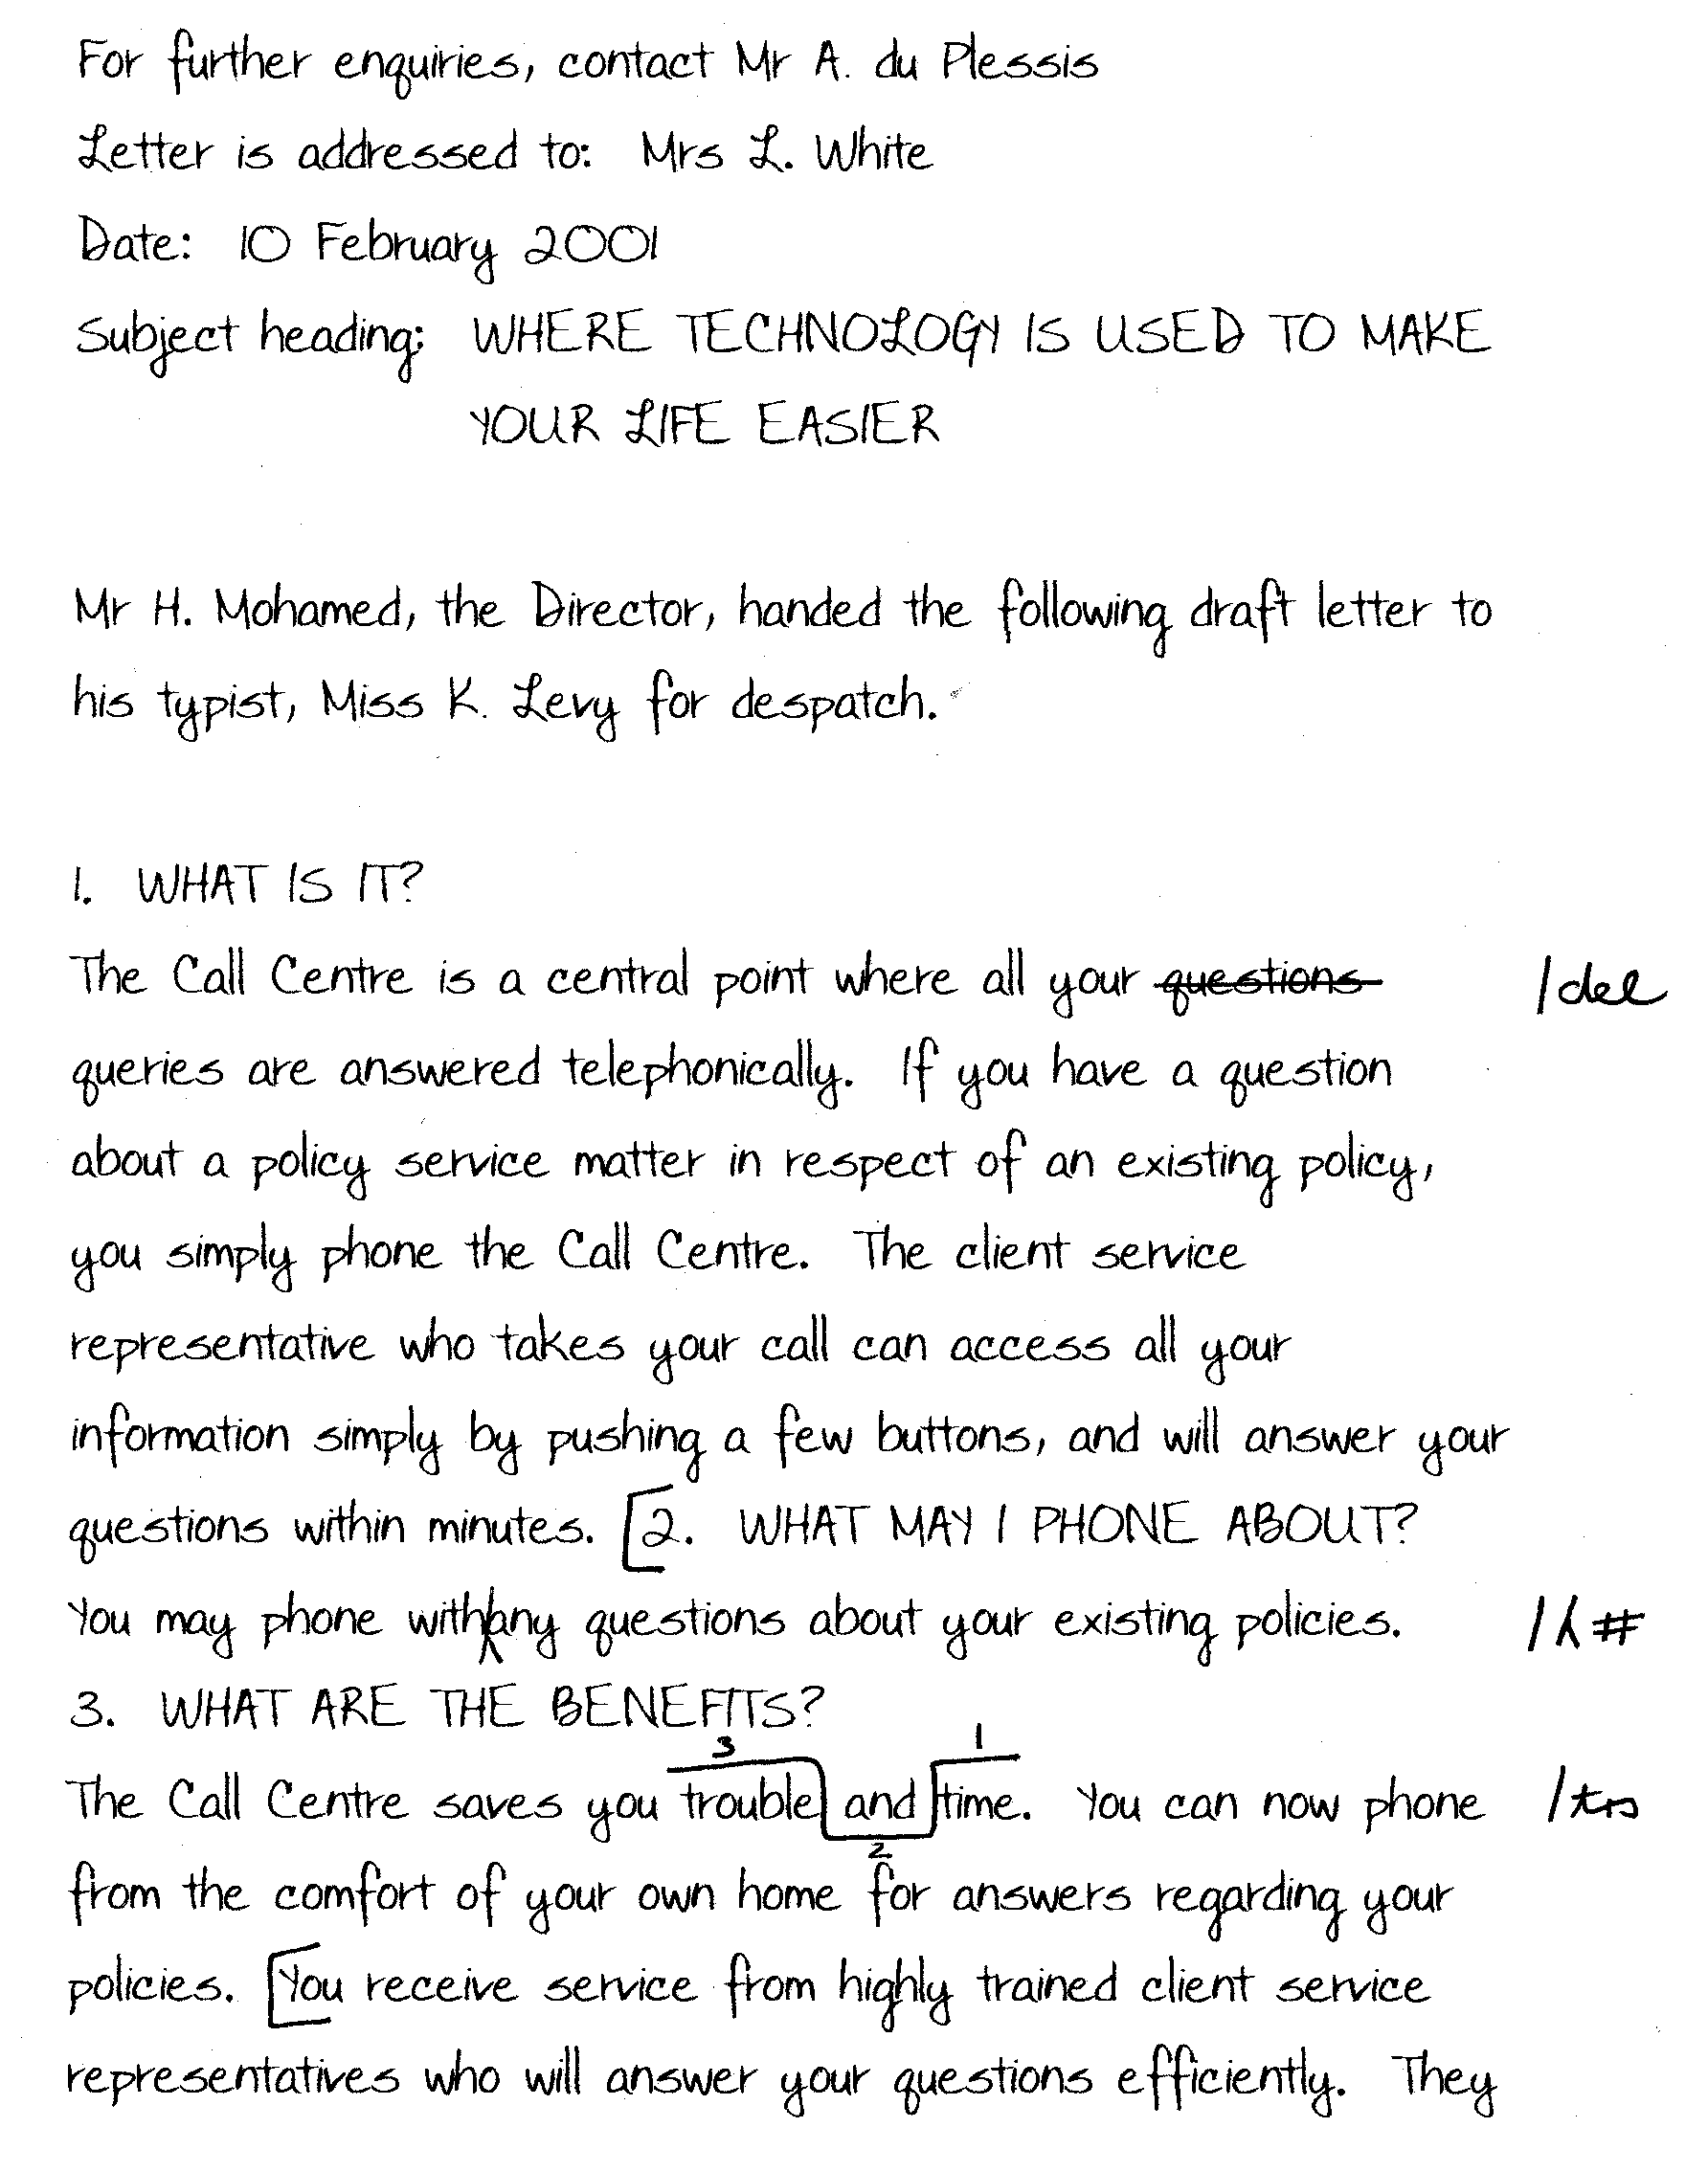 For further enquiries, contact Mr A. du Plessis
Letter is addressed to: Mrs L. White
Date: 10 February 2001
Subject heading: WHERE TECHNOLOGY IS USED TO MAKE
YOUR LIFE EASIER
Mr H. Mohamed, the Director, handed the following draft letter to
his typist, Miss K. Levy for despatch.
1. WHAT IS IT?
The Call Centre is a central point where all your questions /del
queries are answered telephonically. If you have a question
about a policy service matter in respect of an existing policy,
you simply phone the Call Centre. The client service
representative who takes your call can access all your
information simply by pushing a few buttons, and will answer your
questions within minutes. [2. WHAT MAY I PHONE ABOUT?
You may phone with⁁any questions about your existing policies. /⁁#
3. WHAT ARE THE BENEFITS?
3 1
The Call Centre saves you trouble and time. You can now phone /trs
2
from the comfort of your own home for answers regarding your
policies. [You receive service from highly trained client service
representatives who will answer your questions efficiently. They